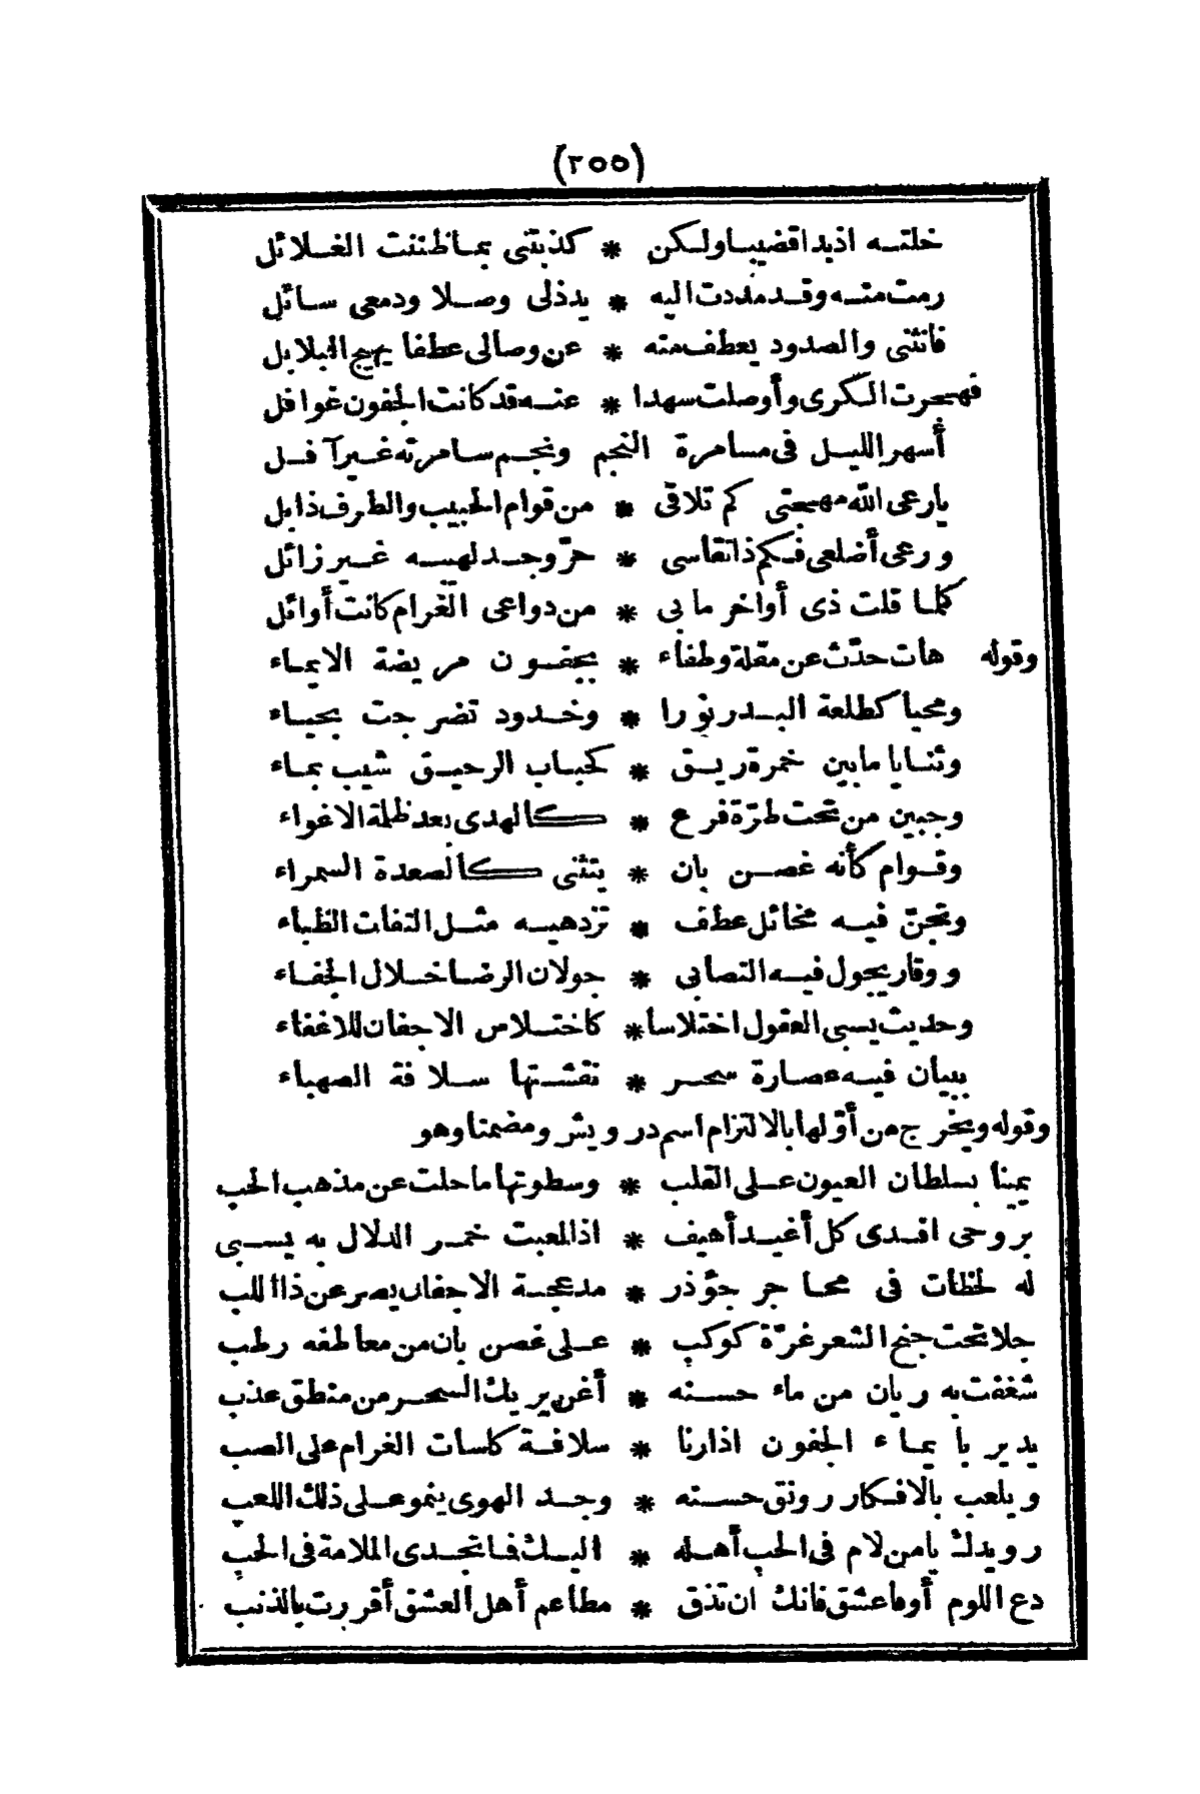 (٢٥٥)
خلتــه اذ بدا قضيبــا ولكن * كذبتنى بمـا ظننت الغــلائل
رمت منــه وقد مددت اليه * يد ذلى وصــلا ودمعى سـائل
فانثنى والصدود يعطف منه * عن وصالى عطفا يهيج البلابل
فهجرت الكرى وأوصلت سهدا * عنــه قد كانت الجفون غوافل
أسهر الليــل فى مسامرة النجم ونجــم سـامرته غــير آفــل
يا رعى الله مهجتى كم تلاقى * من قوام الحبيب والطرف ذابل
ورعى أضلعى فكم ذا تقاسى * حرّ وجــد لهيبــه غــير زائل
كلـا قلت ذى أواخر ما بى * من دواعى الغرام كانت أوائل
وقوله هات حدّث عن مقلة وطفاء * بجفــون مريضة الايماء
ومحيا كطلعة البــدر نورا * وخــدود تضرجت بحيــاء
وثنــايا ما بين خمرة ريــق * كحباب الرحيــق شيب بمـاء
وجبين من تحت طرّة فرع * كالهدى بعد ظلمة الاغواء
وقــوام كأنه غصــن بان * يتثنى كالصعدة السمراء
وتجنّ فيــه مخائل عطف * تزدهيــه مثــل التفات الظباء
ووقار يجول فيــه التصابى * جولان الرضـا خــلال الجفــاء
وحديث يسبى العقول اختلاسا * كاختــلاس الاجفان للاغفاء
ببيان فيــه عصارة سحــر * نفثــتها ســلافة الصهباء
وقوله ويخرج من أوّلها بالالتزام اسم درويش ومضمنا وهو
يمينا بسلطان العيون عــلى القلب * وسطوتها ما حلت عن مذهب الحب
بروحى افــدى كل أغيــد أهيف * اذا لعبت خمــر الدلال به يســبى
له لحظات فى محــاجر جؤذر * مدعجــة الاجفان يصرعن ذا اللب
جلا تحت جنح الشعر غرّة كوكب * عــلى غصن بان من معاطفه رطب
شغفت به ريان من ماء حســنه * أغن يريك السحــر من منطق عذب
يدير بايمــاء الجفون اذا رنا * سلافــة كاسات الغرام على الصب
ويلعب بالافكار رونق حســنه * وجــد الهوى ينمو عــلى ذلك اللعب
رويدك يا من لام فى الحب أهــله * اليــك فمـا تجــدى الملامة فى الحب
دع اللوم أو فاعشق فانك ان تذق * مطاعم أهل العشق أقررت بالذنب